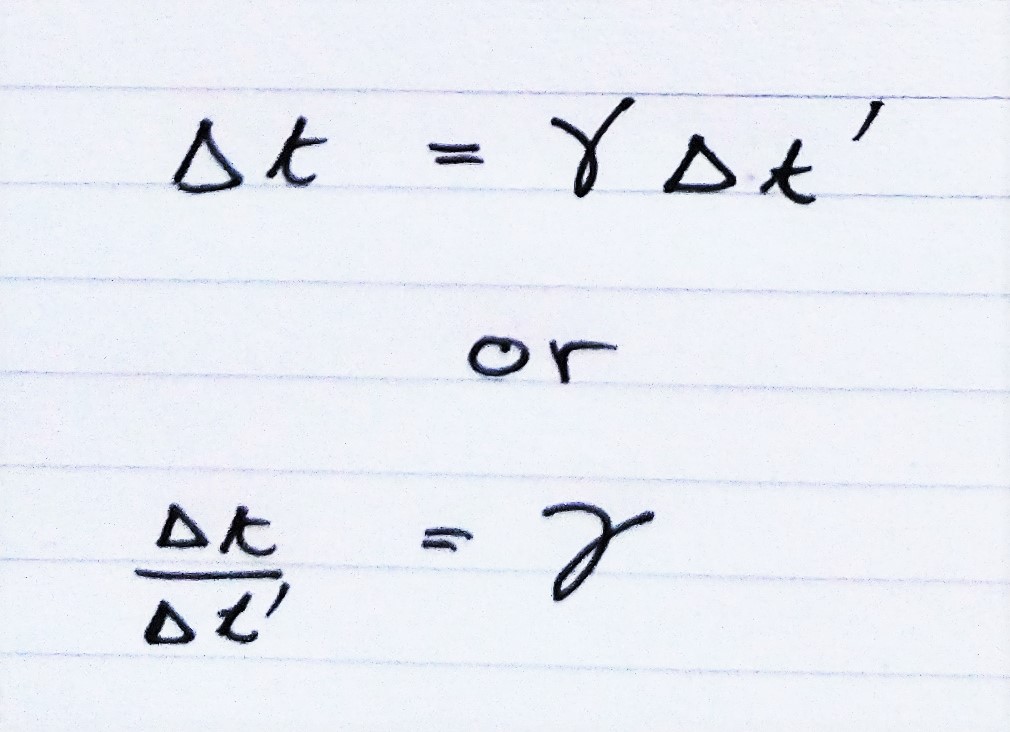 Δt = γ Δt′
or
Δt
Δt′ = γ